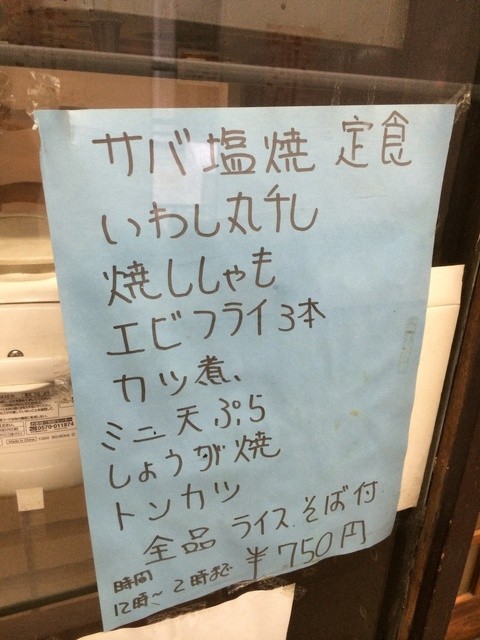 サバ塩焼 定食
いわし丸干し
焼ししゃも
エビフライ3本
カツ煮、
ミニ天ぷら
しょうが焼
トンカツ
全品 ライス.そば付
時間 ¥750円
12時〜2時まで
0570-011874